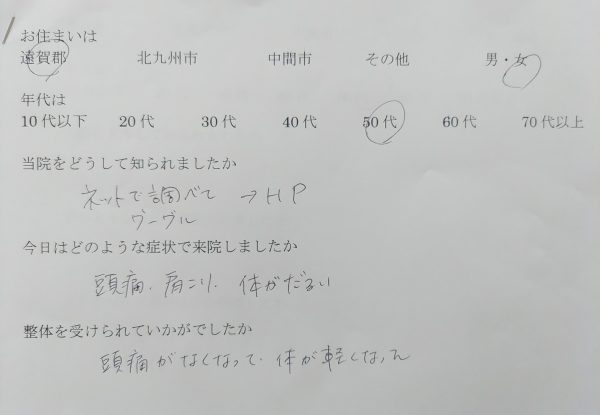 お住まいは
遠賀郡 北九州市 中間市 その他 男・女
年代は
10代以下 20代 30代 40代 50代 60代 70代以上
当院をどうして知られましたか
ネットで調べて →HP
グーグル
今日はどのような症状で来院しましたか
頭痛、肩こり、体がだるい
整体を受けられていかがでしたか
頭痛がなくなって、体が軽くなった